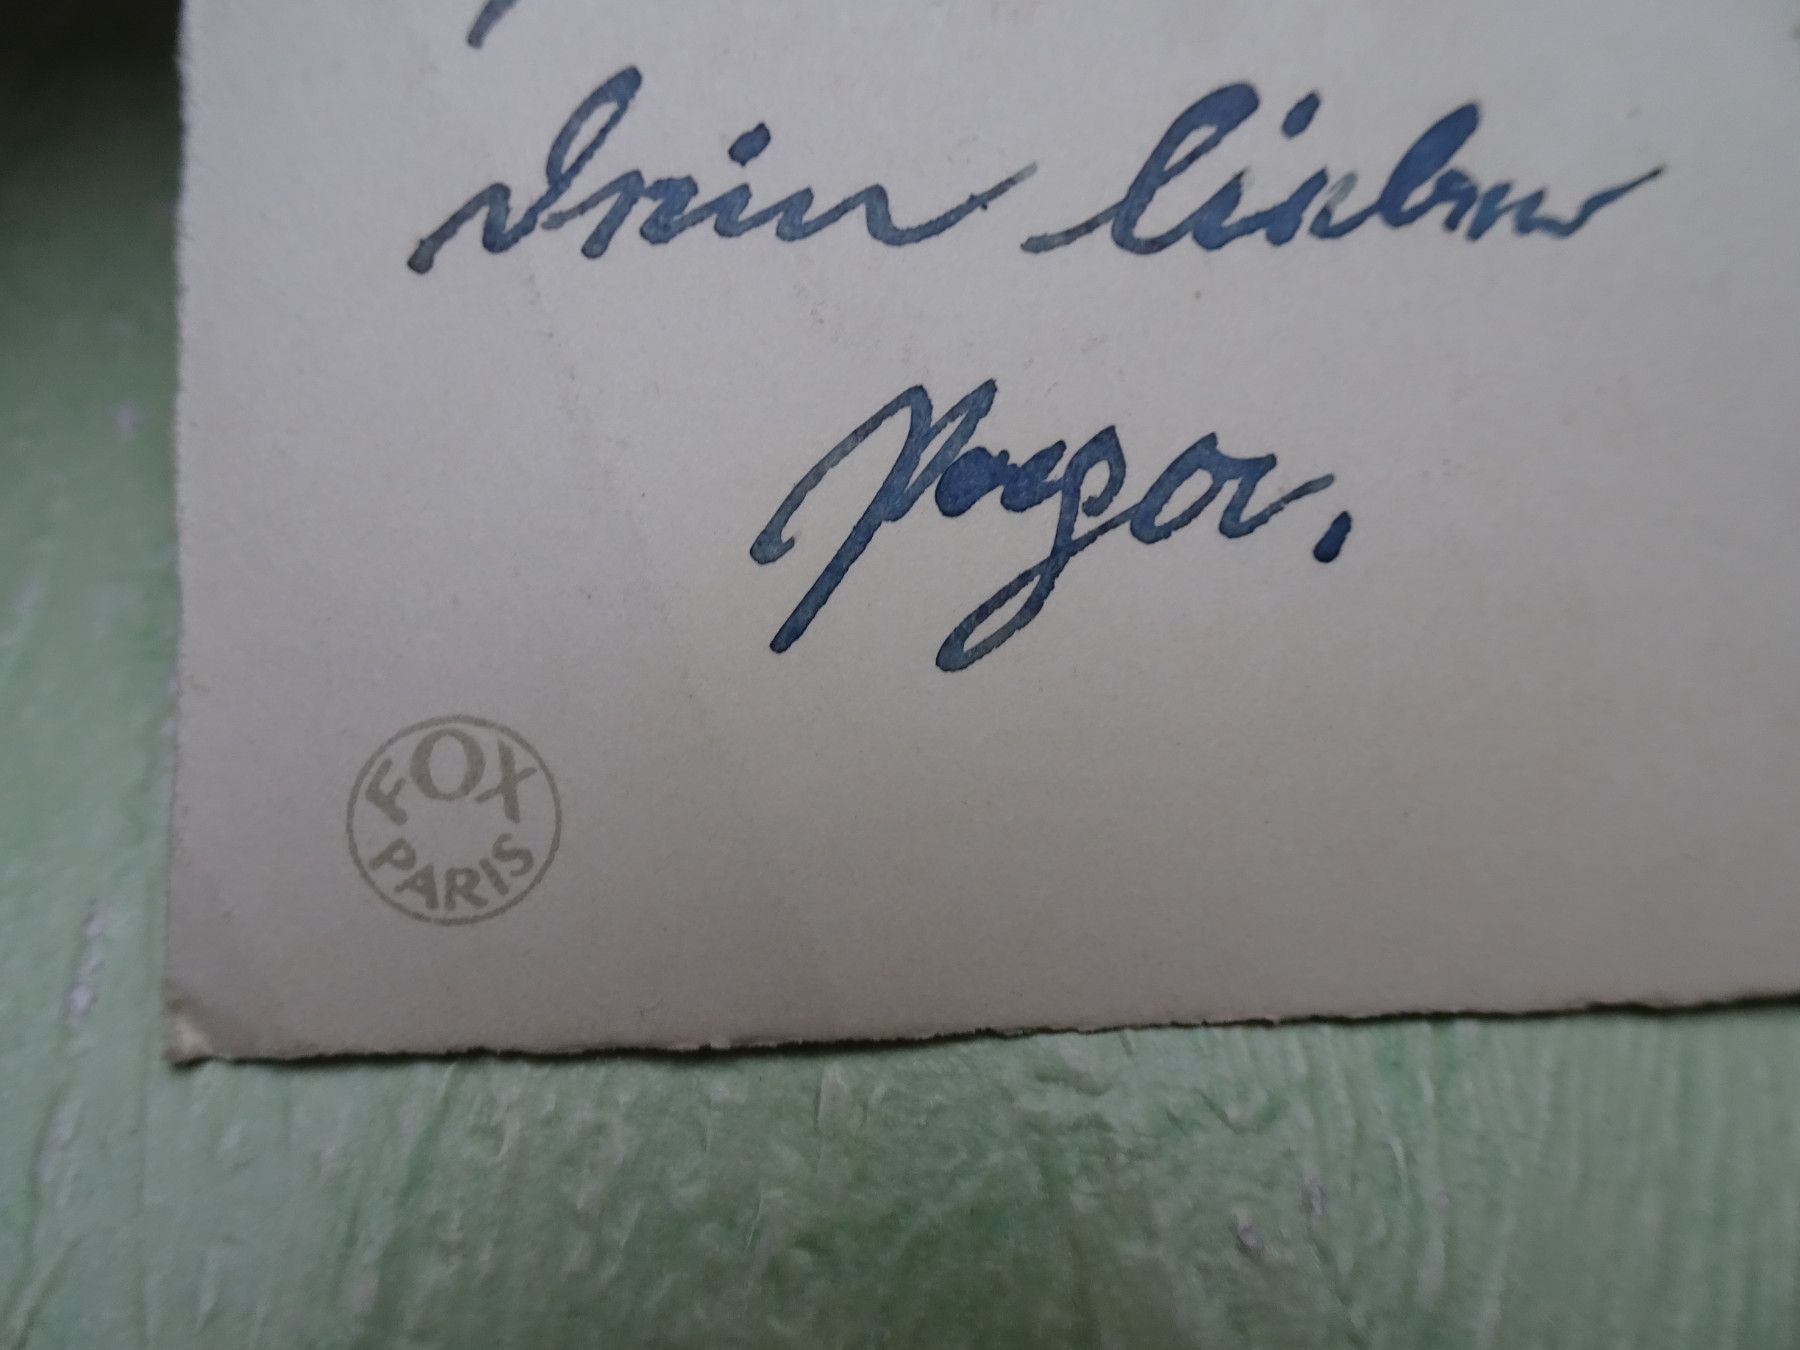 Dein lieber
Papa.
FOX
PARIS